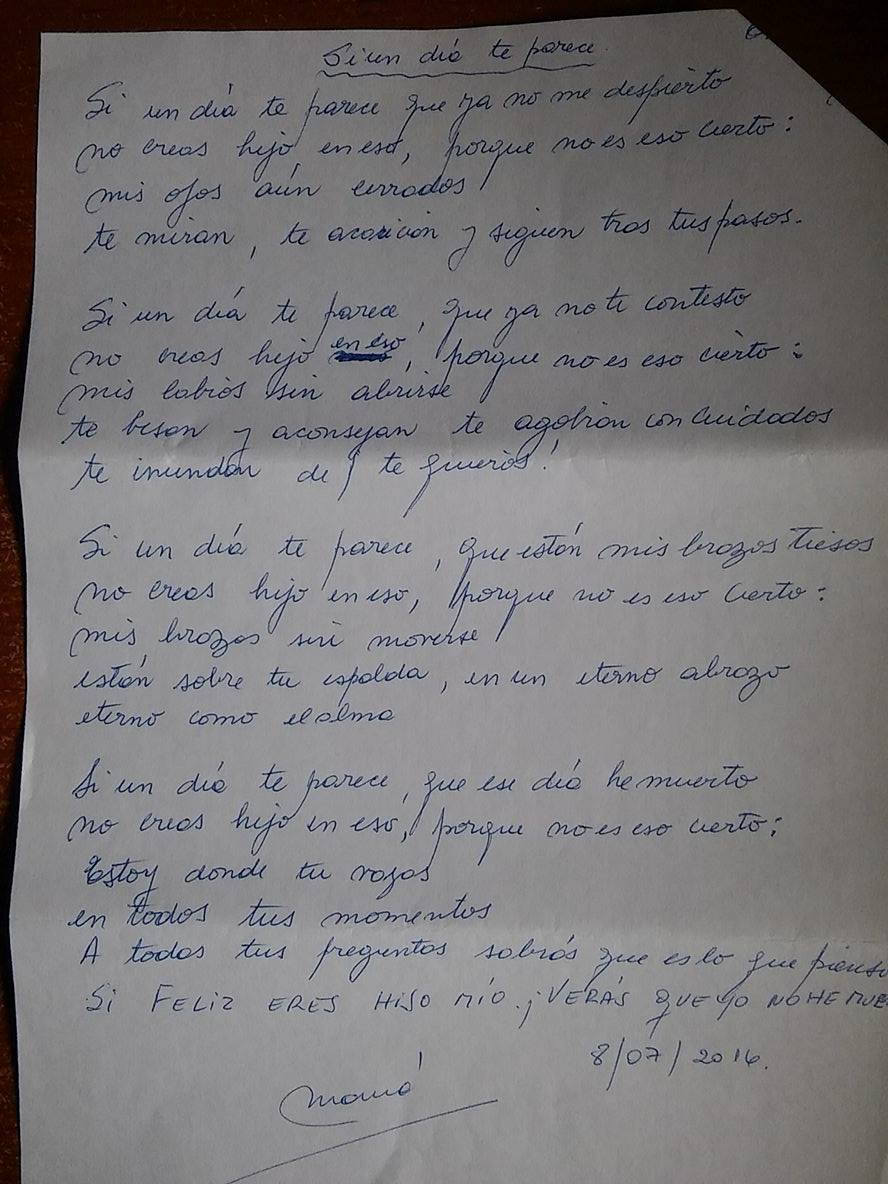 Si un día te parece
Si un día te parece que ya no me despierto
no creas hijo en eso, porque no es eso cierto:
mis ojos aún cerrados
te miran, te acarician y siguen tras tus pasos.
Si un día te parece, que ya no te contesto
no creas hijo en eso, porque no es eso cierto:
mis labios sin abrirse
te besan y aconsejan te agobian con cuidados
te inundan de ¡ te quieros!
Si un día te parece, que están mis brazos tiesos
no creas hijo en eso, porque no es eso cierto:
mis brazos sin moverse
están sobre tu espalda, en un eterno abrazo
eterno como el alma
Si un día te parece, que ese día he muerto
no creas hijo en eso, porque no es eso cierto:
Estoy donde tu vayas
en todos tus momentos
A todas tus preguntas sabrás que es lo que pienso
Si FELIZ ERES HIJO MÍO. ¡VERÁS QUE YO NO HE MUE
8/07/2016.
Mamá